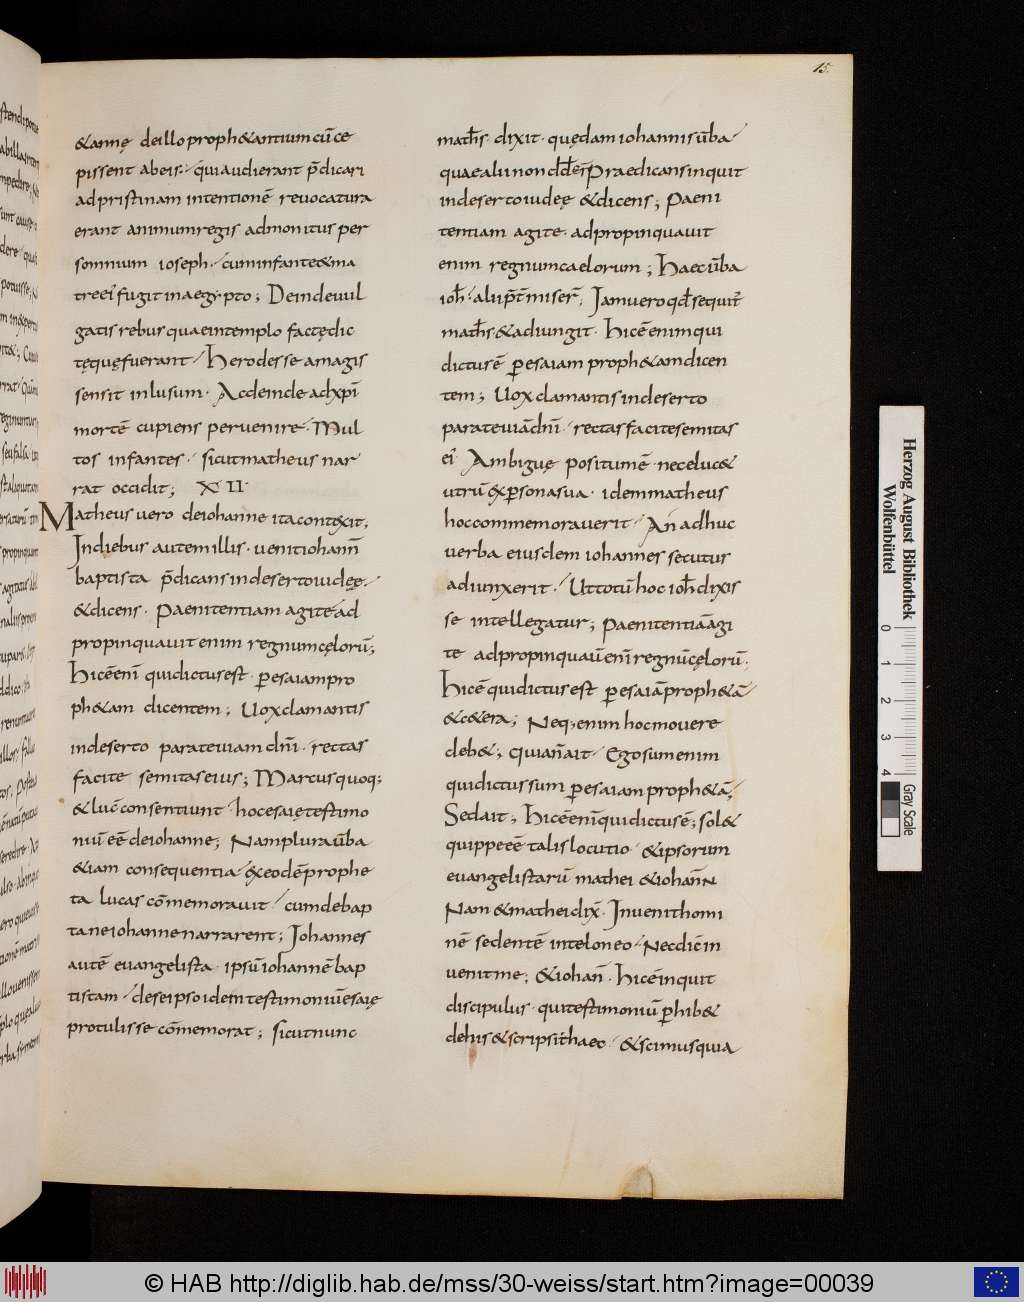 15.
&annę deillo proph&antium cū ce
pissent abeis·/ qui audierant p̄dicari
ad pristinam intentionē revocatura
erant animum regis admonitus per
somnium ioseph·/ cum infante&ma
tre eī fugit in aegypto; Deinde uul
gatis rebus quae in templo factę dic
tęquę fuerant/ Herodes se a magis
sensit inlusum· Ac deinde ad xp̄ī
mortē cupiens pervenire·/ Mul
tos infantes·/ sicut matheus nar
rat occidit; XII·
Matheus vero de iohanne ita contexit;
In diebus autem illis· uenit iohann̄
baptista p̄dicans in deserto iudeę·/
&dicens· Paenitentiam agite·/ ad
propinquauit enim regnum cęlorū;
Hic ē enī qui dictus est· p̱ esaiam pro
ph&am dicentem; Uox clamantis
in deserto parate uiam dn̄i·/ rectas
facite semitas eius; Marcus quoq;
& luc̄ consentiunt· hoc esaię testimo
niū eē de iohanne; Nam plura ūba
&iam consequentia/ & ex eodē prophe
ta lucas cōmemorauit·/ cum de bap
tane iohanne narrarent; Johannes
autē euangelista· ipsū iohannē bap
tistam/ de se ipso idem testimoniū esaię
protulisse cōmemorat; sicut nunc
math̄s· dixit· quędam iohannis ūba/
quae alii non dd̄er̄ Praedicans inquit
in deserto iudeę &dicens; Paeni
tentiam agite· adpropinquauit
enim regnum caelorum; Haec ūba
ioh̄·/ alii p̄t̄miser̄; Jam uero qd̄ sequit̄
math̄s·&adiungit· Hic ē enim qui
dictus ē p̱ esaiam proph&am dicen
tem; Uox clamantis in deserto
parate uiā dn̄i·/ rectas facite semitas
eī Ambiguę positum ē· nec eluc&
utrū ex p̱sona sua· idem matheus
hoc commemorauerit·/ An adhuc
uerba eiusdem iohannes secutus
adiunxerit·/ Ut totū hoc ioh̄ dixis
se intellegatur; Paenitentiā agi
te adpropinquau̅ enī regnū cęlorū·
Hic ē qui dictus est p̱ esaiā proph&ā/
&c&era; Neq; enim hoc mouere
deb&; quia n̄ ait/ Ego sum enim
qui dictus sum p̱ esaiam proph&ā;/
Sed ait; Hic ē enī qui dictus ē; sol&
quippe eē talis locutio· &ipsorum
euangelistarū mathei &iohann̄
Nam &mathei dix̄· Inueni thomi
nē sedentē in teloneo·/ Nec dic̄ in
uenit me; &iohan̄· hic ē inquit
discipulus· qui testimoniū p̱hib&
de his &scripsit haec·/ &scimus quia
Herzog August Bibliothek
Wolfenbüttel
0 1 2 3 4
Gray Scale
© HAB http://diglib.hab.de/mss/30-weiss/start.htm?image=00039